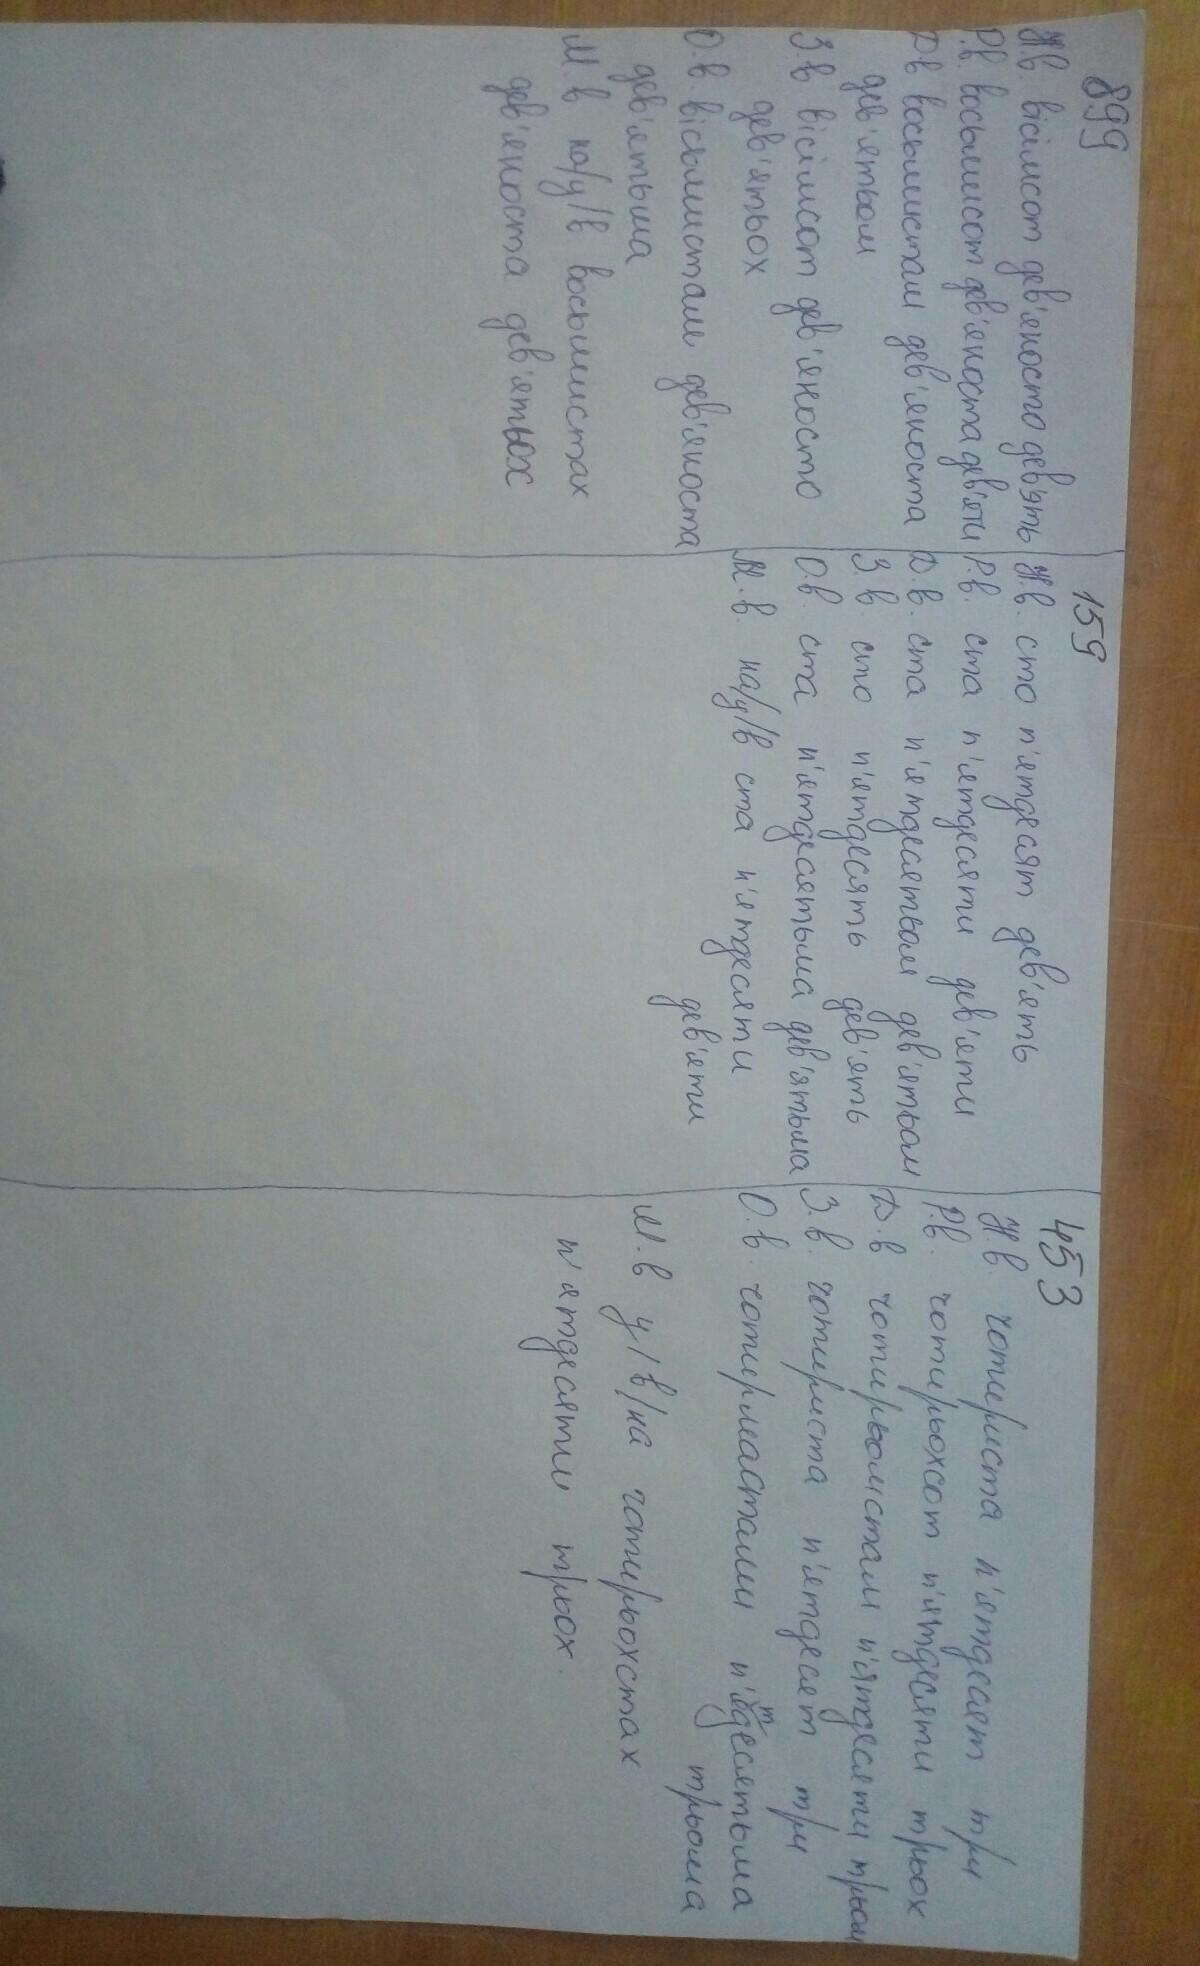 899
Н.в. вісімсот дев'яносто дев'ять
Р.в. восьмисот дев'яноста дев'яти
Д.в восьмистам дев'яноста
дев'ятьом
З.в вісімсот дев'яносто
дев'ятьох
О.в. вісьмистами дев'яноста
дев'ятьма
М.в на/у/в восьмистах
дев'яноста дев'ятьох
159
Н.в. сто п'ятдесят дев'ять
Р.в. ста п'ятдесяти дев'яти
Д.в. ста п'ятдесятьом дев'ятьом
З.в. сто п'ятдесять дев'ять
О.в. ста п'ятдесятьма дев'ятьма
М.в. на/у/в ста п'ятдесяти
дев'яти
453
Н.в. чотириста п'ятдесят три
Р.в. чотирьохсот п'ятдесяти трьох
Д.в чотирьомстам п'ятдесяти трьом
З.в. чотириста п'ятдесят три
О.в. чотирмастами п'ятдесятьма
трьома
М.в у/в/на чотирьохстах
п'ятдесяти трьох.